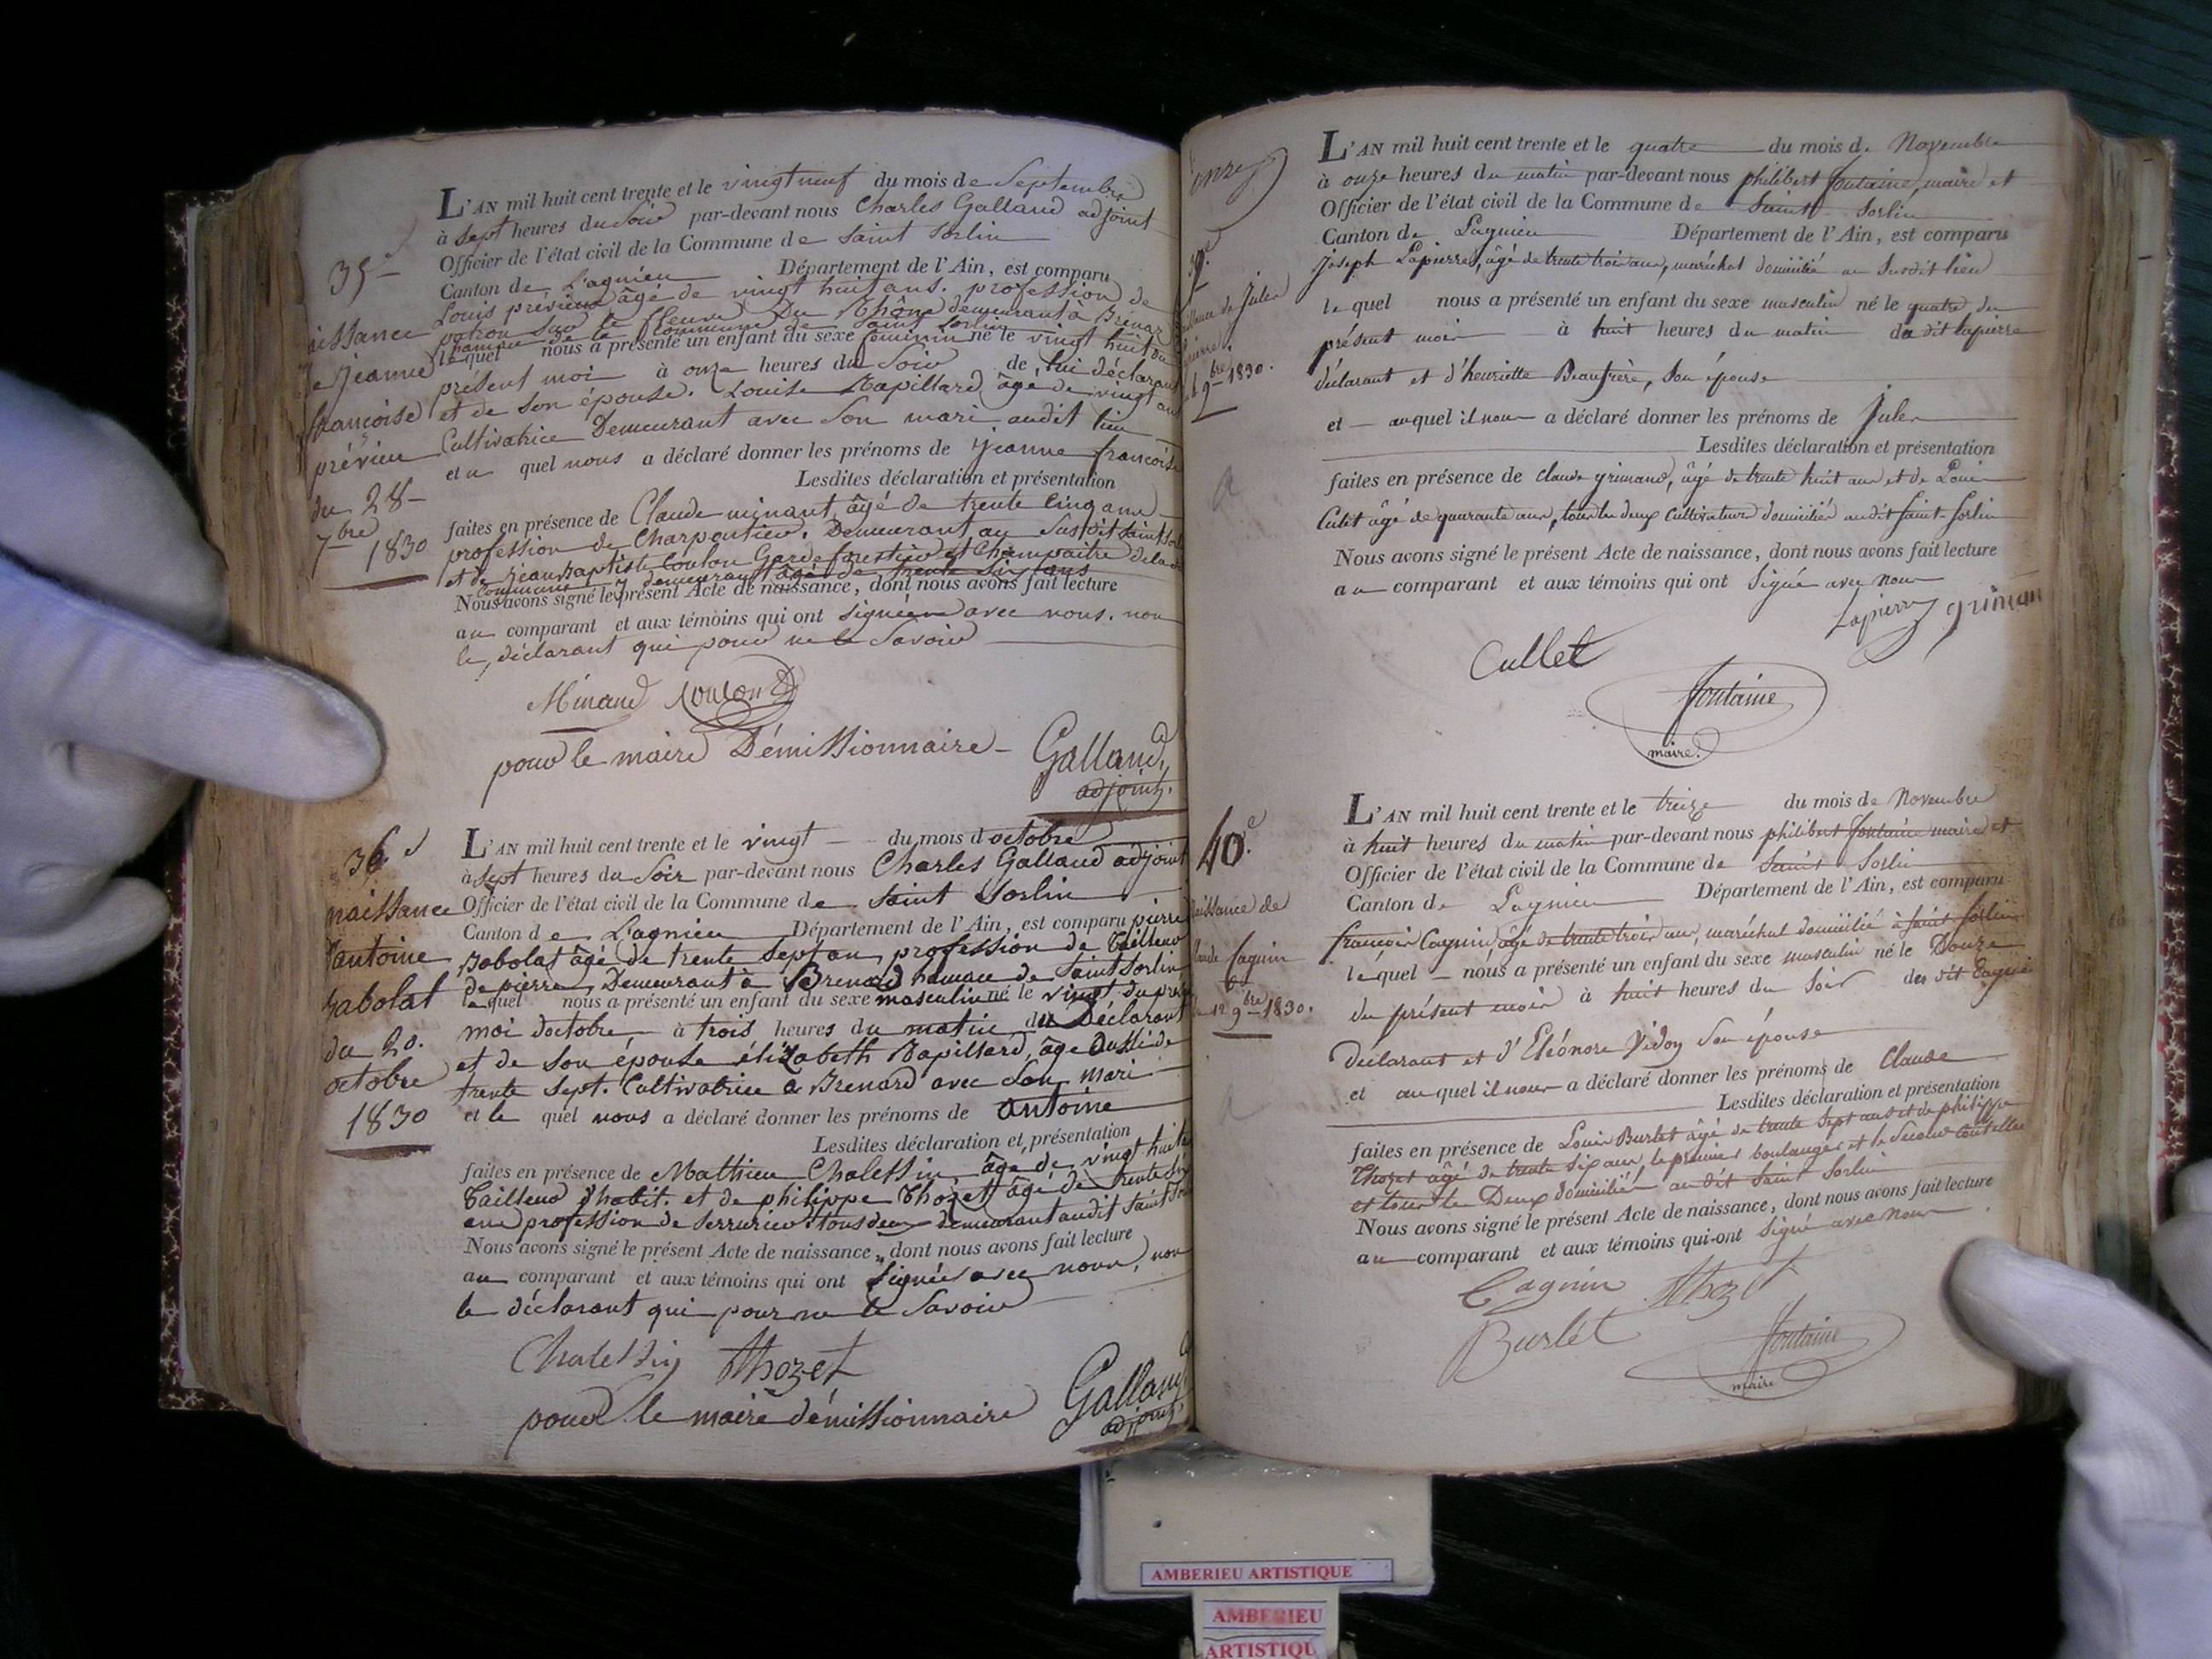 35e
issance
de jeanne
francoise
prévieu
du 28
7bre
1830
L'AN mil huit cent trente et le vingt neuf du mois de Septembre
à Sept heures du Soir par-devant nous Charles Galland adjoint
Officier de l'état civil de la Commune de Saint Sorlin
Canton de L'agnieu Département de l'Ain, est comparu
Louis prévieux âgé de vingt huit ans. profession de
patron sur le fleuve Du Rhône demeurant à Brénaz
hameau de la Commune de Saint Sorlin
lequel nous a présenté un enfant du sexe féminin né le vingt huit du
présent moi à onze heures du Soir de lui déclarant
et de son épouse. Louise Rapillard âgé de vingt ans
Cultivatrice Demeurant avec Son mari audit lieu
et a quel nous a déclaré donner les prénoms de jeanne francoise
Lesdites déclaration et présentation
faites en présence de Claude minant âgé de trente cinq ans
profession de Charpentier. Demeurant au Susdit Saint
et de jean Baptiste Coulon Garde forestier et Champaitre dela
Commune y demeurant âgé de trente Six ans
Nous avons signé le présent Acte de naissance, dont nous avons fait lecture
au comparant et aux témoins qui ont signée avec nous. non
le, déclarant qui pour ne le Savoir
Minand Coulon
pour le maire Démissionnaire - Galland
adjoint.
36e
naissance
d'antoine
Babolat
du 20.
octobre
1830
L'AN mil huit cent trente et le vingt du mois d octobre
à Sept heures du Soir par-devant nous Charles Galland adjoint
Officier de l'état civil de la Commune de Saint Sorlin
Canton de L'agnieu Département de l'Ain, est comparu pierre
Babolat âgé de trente Sept an, profession de tailleur
de pierre, Demeurant à Brenard hameau de Saint Sorlin
lequel nous a présenté un enfant du sexe masculin né le vingt du
moi doctobre, à trois heures du matin du Déclarant
et de son épouse élizabeth Rapillard, âge aussi de
trente Sept. Cultivatrice a Brenard avec Son mari
et le quel nous a déclaré donner les prénoms de antoine
Lesdites déclaration et présentation
faites en présence de Mathieu Chalessin, âge de vingt huit
tailleur d'habit. et de philippe Thozet âgé de trente
ans profession de Serrurier. tous deux demeurant audit Saint
Nous avons signé le présent Acte de naissance, dont nous avons fait lecture
au comparant et aux témoins qui ont signée avec nous, non
le déclarant qui pour ne le Savoir
Chalessin Thozet
pour le maire démissionnaire Galland
adjoint.
onze
39e
de Jules
9bre 1830.
L'AN mil huit cent trente et le quatre du mois de Novembre
à onze heures du matin par-devant nous philibert fontaine, maire et
Officier de l'état civil de la Commune de Saint Sorlin
Canton de Lagnieu Département de l'Ain, est comparu
joseph Lapierre, âgé de trente trois ans, maréchal domicilié au Susdit lieu
lequel nous a présenté un enfant du sexe masculin né le quatre du
présent mois à huit heures du matin du dit lapierre
déclarant et d'henriette Beaufrère, Son épouse
et auquel il nous a déclaré donner les prénoms de Jules
Lesdites déclaration et présentation
faites en présence de Claude grimand, âgé de trente huit ans et de Louis
Culet âgé de quarante ans, tous les deux Cultivateurs domiciliés audit Saint Sorlin
Nous avons signé le présent Acte de naissance, dont nous avons fait lecture
au comparant et aux témoins qui ont Signé avec nous
Lapierre
Cullet
fontaine
maire.
40.e
naissance de
Claude Cagnin
du 12 9bre 1830.
L'AN mil huit cent trente et le treize du mois de Novembre
à huit heures du matin par-devant nous philibert fontaine maire et
Officier de l'état civil de la Commune de Saint Sorlin
Canton de Lagnieu Département de l'Ain, est comparu
françois Cagnin âgé de trente trois ans, maréchal domicilié à Saint Sorlin
lequel nous a présenté un enfant du sexe masculin né le Douze
du présent mois à huit heures du Soir du dit Cagnin
Déclarant et d'Eléonore Vidoy Son épouse
et auquel il nous a déclaré donner les prénoms de Claude
Lesdites déclaration et présentation
faites en présence de Louis Burlet âgé de trente Sept ans et de philippe
Thozet âgé de trente six ans le premier boulanger et le Second
et tous les Deux domiciliés au dit Saint Sorlin
Nous avons signé le présent Acte de naissance, dont nous avons fait lecture
au comparant et aux témoins qui ont Signé avec nous
Cagnin Thozet
Burlet fontaine
maire
AMBERIEU ARTISTIQUE
AMBERIEU
ARTISTIQU